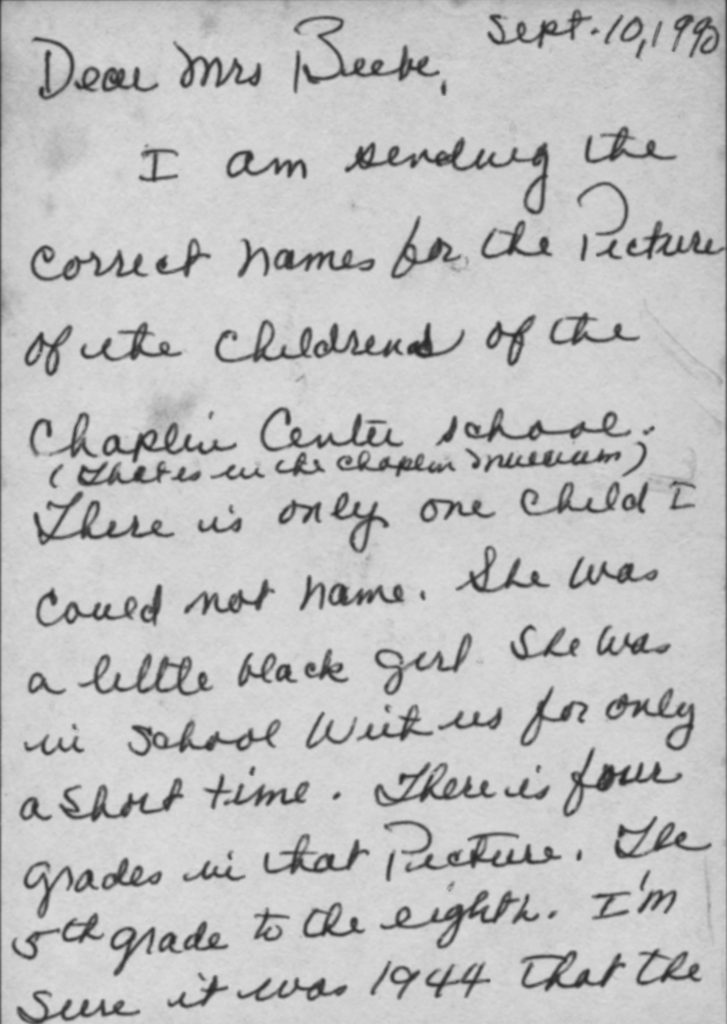 Sept. 10, 1990
Dear Mrs Beebe,
I am sending the
correct names for the Picture
of the Childrens of the
Chaplin Center school.
(That is in the Chaplin Museum)
There is only one child I
could not name. She was
a little black girl She was
in school with us for only
a short time. There is four
grades in that Picture. The
5th grade to the eighth. I'm
sure it was 1944 that the